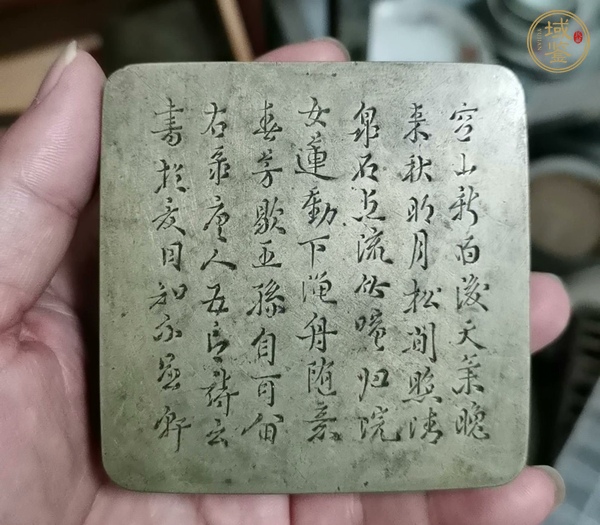 空山新雨後天氣晚
來秋明月松間照清
泉石上流竹喧归浣
女蓮動下漁舟随意
春芳歇王孫自可留
右录唐人五言詩云
書於月知不足軒
域鉴